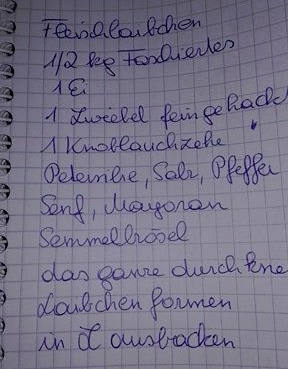 Fleischlaibchen
1/2 kg Faschiertes
1 Ei
1 Zwiebel fein gehackt
1 Knoblauchzehe
Petersilie, Salz, Pfeffer
Senf, Mayoran
Semmelbrösel
das ganze durchkne
Laibchen formen
in Öl ausbacken